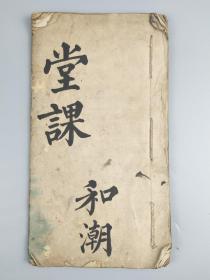 堂課
和潮